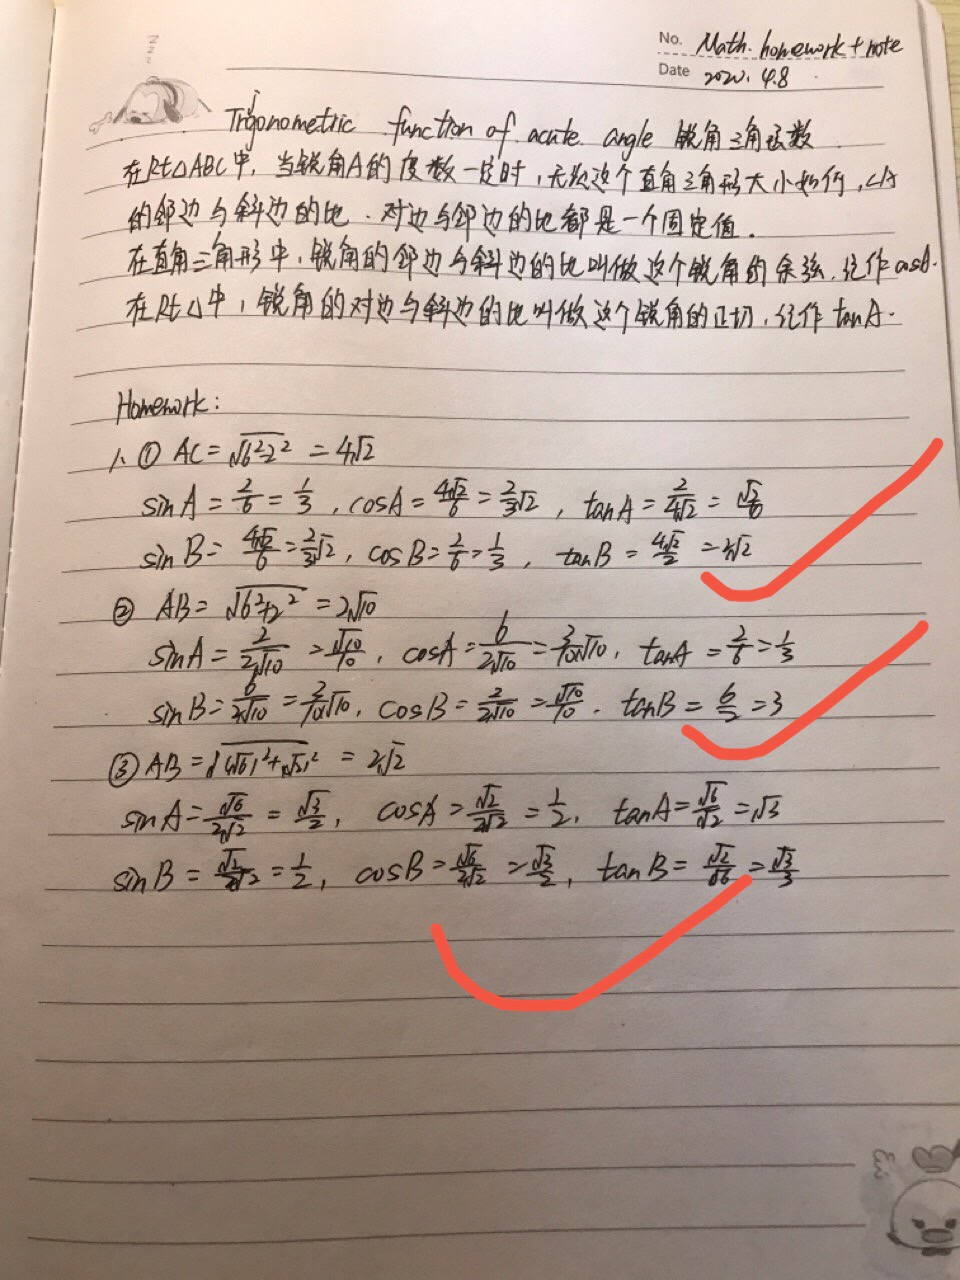 zzz
No. Math. homework + note
Date 2020. 4.8
Trigonometric function of acute angle 锐角三角函数
在Rt△ABC中, 当锐角A的度数一定时, 无论这个直角三角形大小如何, ∠A
的邻边与斜边的比. 对边与邻边的比都是一个固定值.
在直角三角形中, 锐角的邻边与斜边的比叫做这个锐角的余弦, 记作cosA.
在Rt△中, 锐角的对边与斜边的比叫做这个锐角的正切, 记作tanA.
Homework:
1. ① AC = √(6²-2²) = 4√2
sinA = 2/6 = 1/3, cosA = 4√2/6 = 2/3√2, tanA = 2/4√2 = √2/6
sinB = 4√2/6 = 2/3√2, cosB = 2/6 = 1/3, tanB = 4√2/2 = 2√2
② AB = √(6²+2²) = 2√10
sinA = 2/2√10 = √10/10, cosA = 6/2√10 = 3/10√10, tanA = 2/6 = 1/3
sinB = 6/2√10 = 3/10√10, cosB = 2/2√10 = √10/10. tanB = 6/2 = 3
③ AB = √((√6)²+(√2)²) = 2√2
sinA = √6/2√2 = √3/2, cosA = √2/2√2 = 1/2, tanA = √6/√2 = √3
sinB = √2/2√2 = 1/2, cosB = √6/2√2 = √3/2, tanB = √2/√6 = √3/3